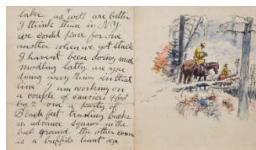 later as well are better
I think there in N.Y.
we could pose for one
another when we get stuck
I haven't been doing much
modling latly as you
doing very then
time I am working on
a couple of canvises
by 2 one a party of
Black feet
in advance squaw in the
back ground the other one
is a buffalo hunt